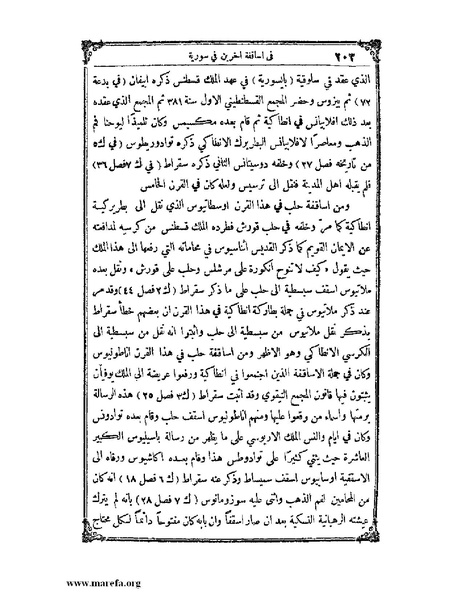 ٢٠٢ في اساقفة اخرين في سورية
الذي عقد في سلوقية (بايسورية) في عهد الملك قسطنس ذكره ابيفان (في بدعة
٧٣) ثم بيزوس وحضر المجمع القسطنطيني الاول سنة ٣٨١ ثم المجمع الذي عقده
بعد ذلك افلابيانس في انطاكية ثم قام بعده مكسيمس وكان تلميذًا ليوحنا فم
الذهب ومعاصرًا لافلابيانس البطريرك الانطاكي ذكره توادوريطوس (في ك٥
من تاريخه فصل ٢٧) وخلفه دوسيتانس الثاني ذكره سقراط (في ك٧ فصل ٣٦)
فلم يقبله اهل المدينة فنقل الى ترسيس ولعله كان في القرن الخامس
ومن اساقفة حلب في هذا القرن اوسطاتيوس الذي نقل الى بطريركية
انطاكية كما مرّ وخلفه في حلب قورش فطرده الملك قسطنس من كرسيه لمدافعته
عن الايمان القويم كما ذكر القديس اتناسيوس في محاماته التي رفعها الى هذا الملك
حيث يقول «كيف لا تنوح انكورة على مرشلس وحلب على قورش» ونقل بعده
ملاتيوس اسقف سبسطية الى حلب على ما ذكر سقراط (ك٢ فصل ٤٤) وقد مر
عند ذكر ملاتيوس في جملة بطاركة انطاكية في هذا القرن ان بعضهم خطأ سقراط
بذكر نقل ملاتيوس من سبسطية الى حلب واثبتوا انه نقل من سبسطية الى
الكرسي الانطاكي وهو الاظهر ومن اساقفة حلب في هذا القرن اناطوليوس
وكان في جملة الاساقفة الذين اجتمعوا في انطاكية ورفعوا عريضة الى الملك يوفيان
يثبتون فيها قانون المجمع النيقوي وقد اثبت سقراط (ك٣ فصل ٢٥) هذه الرسالة
برمتها واسماء من وقعوا عليها ومنهم اناطوليوس اسقف حلب وقام بعده توادوتس
وكان في ايام والنس الملك الاريوسي على ما يظهر من رسالة باسيليوس الكبير
العاشرة حيث يثني كثيرًا على توادوطس هذا وقام بعده اكاشيوس ورقاه الى
الاسقفية اوسابيوس اسقف سميساط وذكر عنه سقراط (ك ٦ فصل ١٨) انه كان
من المحامين لفم الذهب واثنى عليه سوزومانوس (ك ٧ فصل ٢٨) بانه لم يترك
عيشته الرهبانية النسكية بعد ان صار اسقفًا وان بابه كان مفتوحًا دائمًا لكل محتاج
www.marefa.org